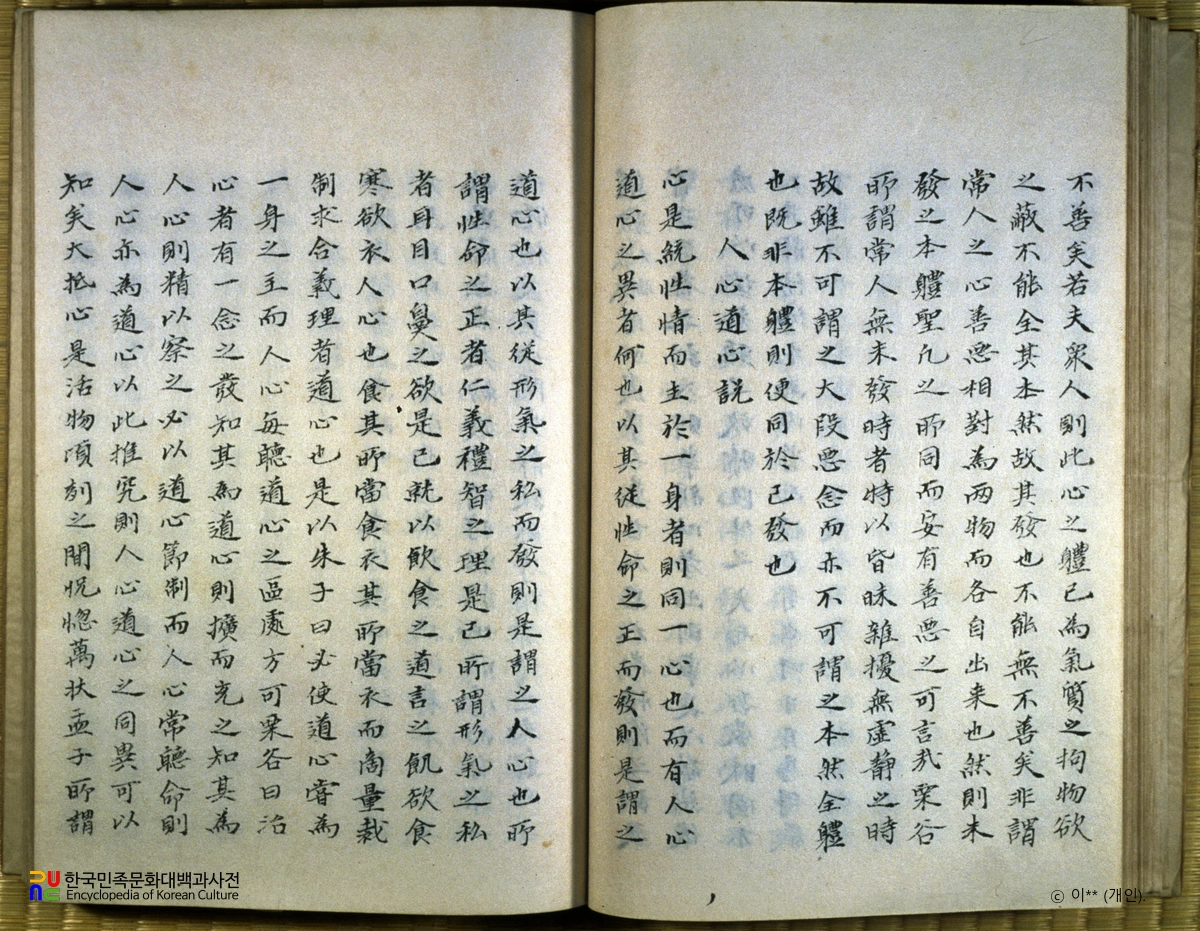 不善矣若夫衆人則此心之軆已為氣質之拘物欲
之蔽不能全其本然故其發也不能無不善矣非謂
常人之心善惡相對為兩物而各自出来也然則未
發之本軆聖凡之所同而安有善惡之可言哉栗谷
所謂常人無未發時者特以昏昧雜擾無虛静之時
故雖不可謂之大段惡念而亦不可謂之本然全軆
也既非本軆則便同於已發也
人心道心説
心是統性情而主於一身者則同一心也而有人心
道心之異者何也以其従性命之正而發則是謂之
道心也以其従形氣之私而發則是謂之人心也所
謂性命之正者仁義禮智之理是已所謂形氣之私
者耳目口鼻之欲是已就以飲食之道言之飢欲食
寒欲衣人心也食其所當食衣其所當衣而商量裁
制求合義理者道心也是以朱子曰必使道心常為
一身之主而人心每聽道心之區處方可栗谷曰治
心者有一念之發知其為道心則擴而充之知其為
人心則精以察之必以道心節制而人心常聽命則
人心亦為道心以此推究則人心道心之同異可以
知矣大抵心是活物頃刻之間怳惚萬狀孟子所謂
한국민족문화대백과사전
Encyclopedia of Korean Culture
ⓒ 이** (개인).